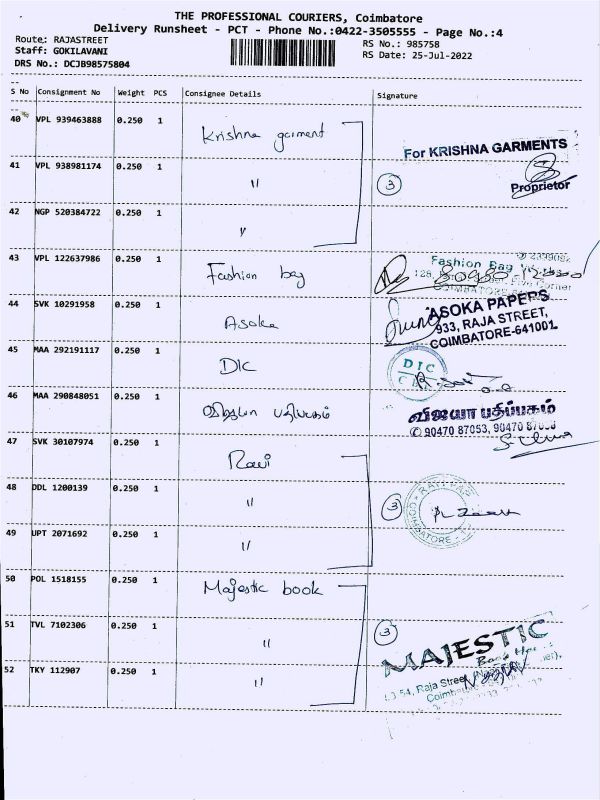 THE PROFESSIONAL COURIERS, Coimbatore
Delivery Runsheet - PCT - Phone No.:0422-3505555 - Page No.:4
Route: RAJASTREET
RS No.: 985758
Staff: GOKILAVANI
RS Date: 25-Jul-2022
DRS No.: DCJB98575804
S No Consignment No Weight PCS Consignee Details Signature
40 VPL 939463888 0.250 1 Krishna garment
For KRISHNA GARMENTS
Proprietor
41 VPL 938981174 0.250 1 " 3
42 NGP 520384722 0.250 1 "
43 VPL 122637986 0.250 1 Fashion bag
Fashion Bag
44 SVK 10291958 0.250 1 Asoka
ASOKA PAPERS
933, RAJA STREET,
COIMBATORE-641001.
45 MAA 292191117 0.250 1 DIC
DIC
46 MAA 290848051 0.250 1 விஜயா பதிப்பகம்
விஜயா பதிப்பகம்
✆ 90470 87053, 90470 87058
47 SVK 30107974 0.250 1 Ravi
48 DDL 1200139 0.250 1 " 3
49 UPT 2071692 0.250 1 "
50 POL 1518155 0.250 1 Majestic book
51 TVL 7102306 0.250 1 " 3
MAJESTIC
52 TKY 112907 0.250 1 "
54, Raja Street